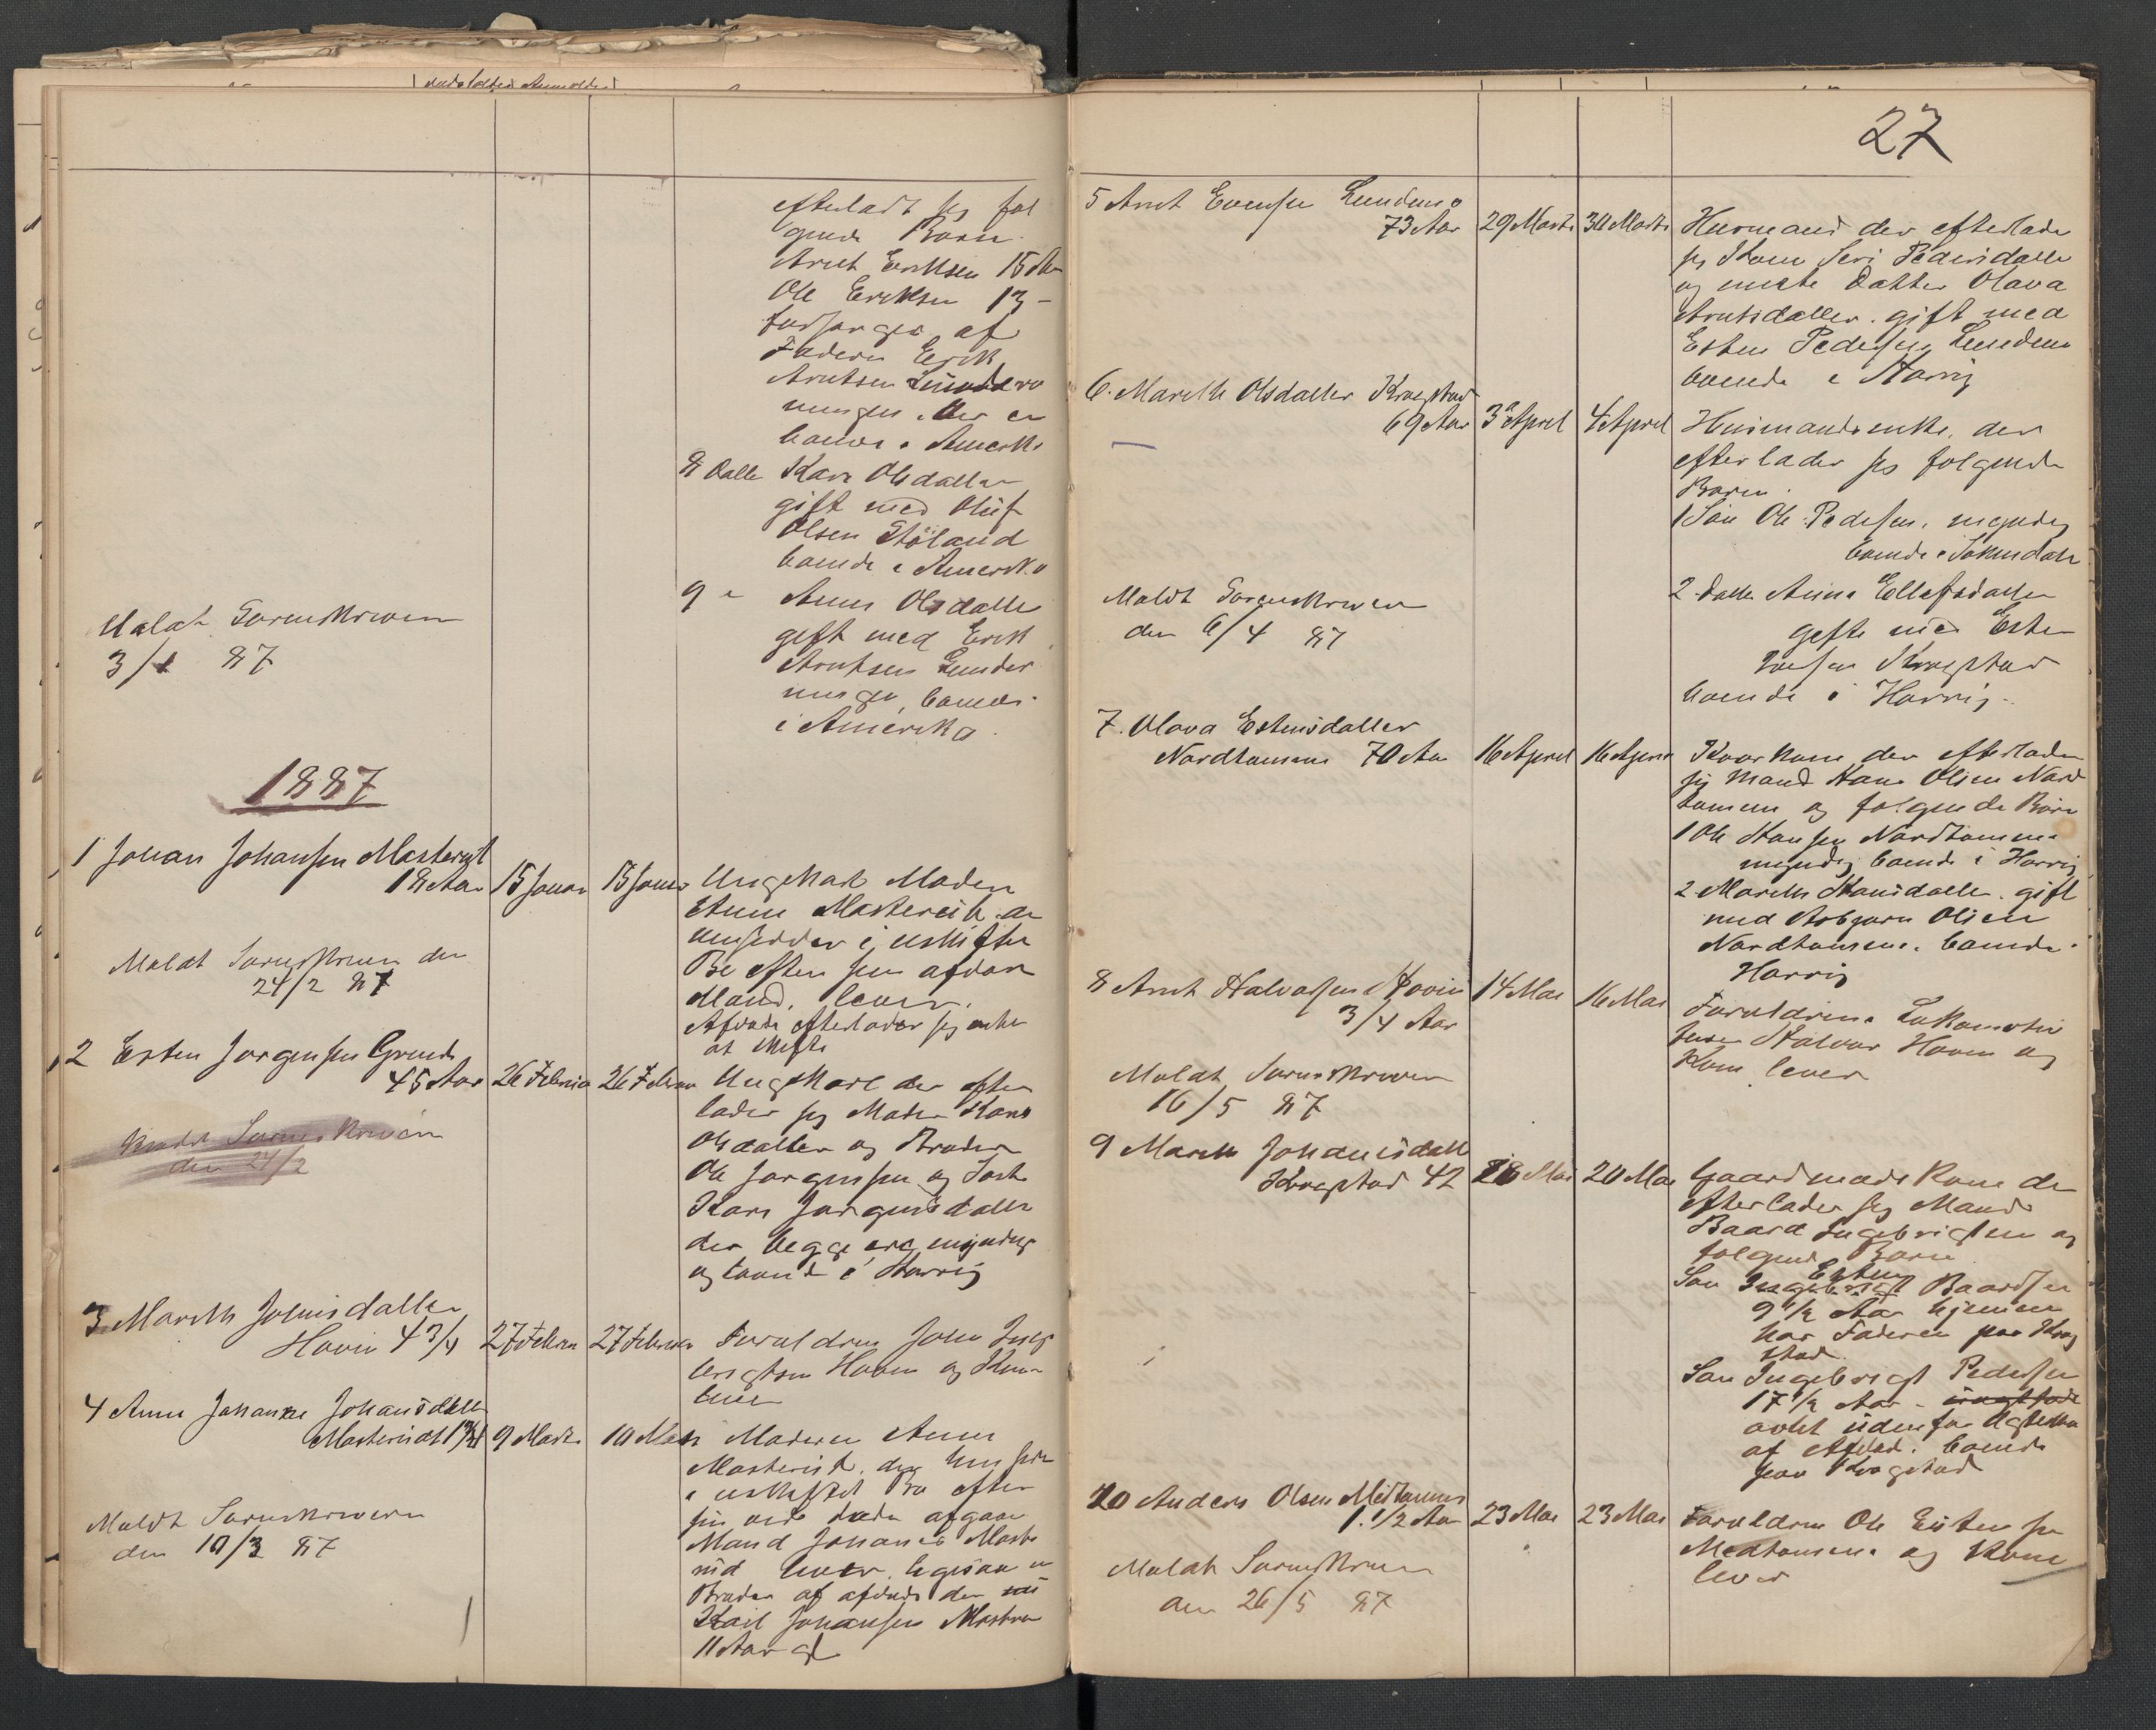 efterladt sig føl
gende Børn.
Arnt Eriksen 15 Aar
Ole Eriksen 13 -
forsørges af
Faderen Erik
Arntsen
der er
boende i Amerika
8 Datter Kari Olsdatter
gift med Oluf
Olsen Støland
boende i Amerika
9 " Anne Olsdatter
gift med Erik
Arntsen
boende
i Amerika.
Meldt Sorenskriveren
3/1 87
1887
1 Johan Johansen
18 Aar 15 Januar 15 Januar Ungkarl Moderen
Anne
hensidder i uskiftet
Bo efter sin afdøde
Mand, lever.
Afdøde efterlader sig intet
at skifte
Meldt Sorenskriveren den
24/2 87
2 Esten Jørgensen Grinde
45 Aar 26 Februar 26 Februar Ungkarl der efter
lader sig Moder Kari
Olsdatter og Broder
Ole Jørgensen og Søster
Kari Jørgensdatter
der begge ere myndige
og boende i Horrig
Meldt Sorenskriveren
den 24/2
3 Marith Johnsdatter
Hovin 4 3/4 27 Februar 27 Februar Foreldrene John Inge
brigtsen Hovin og Kone
lever
4 Anne Johanne Johansdatter
1 3/4 9 Marts 10 Marts Moderen Anne
der hensidder
i uskiftet Bo efter
sin ved døden afgaaede
Mand Johan
lever, ligesaa en
Broder af afdøde
Johansen
11 Aar gl
Meldt Sorenskriveren
den 10/3 87
27
5 Arnt Evensen Lundemo
73 Aar 29 Marts 30 Marts Huusmand der efterlader
sig Kone Seri Pedersdatter
og eneste Datter Olava
Arntsdatter gift med
Esten Pedersen Lundemo
boende i Horrig
6. Marith Olsdatter Kregstad
69 Aar 3 April 4 April Huusmandsenke, der
efterlader sig følgende
Børn.
1 Søn Ole Pedersen, myndig
boende i Soknedalen
2 Datter Anne Ellefsdatter
gift med Esten
Kregstad
boende i Horrig.
Meldt Sorenskriveren
den 6/4 87
7. Olava Estensdatter
Nordtømme 70 Aar 16 April 16 April Kaarkone der efterlader
sig Mand Hans Olsen Nord
tømme og følgende Børn
1 Ole Hansen Nordtømme
myndig boende i Horrig
2 Marith Hansdatter gift
med Asbjørn Olsen
Nordtømme. boende
Horrig
8 Arnt Halvorsen Hovin 14 Mai 16 Mai
3/4 Aar Foreldrene Lokomotiv
Halvor Hovin og
Kone lever
Meldt Sorenskriveren
16/5 87
9 Marith Johannisdatter
Kregstad 42 18 Mai 20 Mai Gaardmands Kone der
efterlader sig Mand
Baard Ingebrigtsen og
følgende Børn
Esten
Søn Ingebrigt Baardsen
9 1/2 Aar hjemme
hos Faderen paa Kreg
stad
Søn Ingebrigt Pedersen
17 1/2 Aar -
avlet udenfor Ægteskab
af Afdøde. boende
paa Kregstad
10 Anders Olsen Midtømme
1 1/2 Aar 23 Mai 23 Mai Foreldrene Ole Estensen
Medtømme og Kone
lever
Meldt Sorenskriveren
den 26/5 87